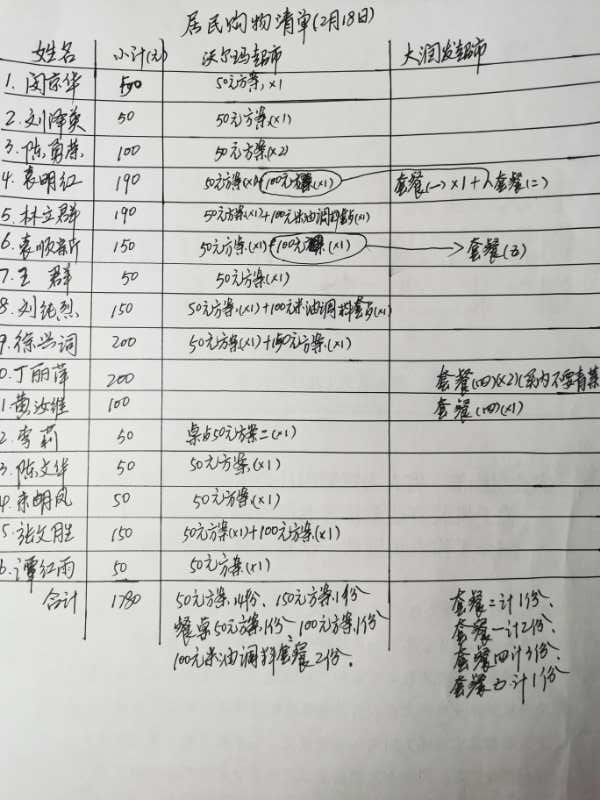 居民购物清单(2月18日)
姓名 小计(元) 沃尔玛超市 大润发超市
1. 闵京华 50 50元方案,×1
2. 刘泽英 50 50元方案(×1)
3. 陈勇荣 100 50元方案(×2)
4. 袁明红 190 50元方案(×1)+100元方案(×1) 套餐(一)×1+套餐(二)
5. 林立群 190 50元方案(×2)+100元米油调料套餐(×1)
6. 袁顺新 150 50元方案(×1)+100元方案(×1) 套餐(五)
7. 王群 50 50元方案(×1)
8. 刘纯烈 150 50元方案(×1)+100元米油调料套餐(×1)
9. 徐兴词 200 50元方案(×1)+150元方案(×1)
0. 丁丽萍 200 套餐(四)(×2)(系内不要青菜
1. 黄汝维 100 套餐(四)(×1)
2. 李莉 50 50元方案二(×1)
3. 陈文华 50 50元方案(×1)
4. 明凤 50 50元方案(×1)
5. 张文胜 150 50元方案(×1)+100元方案(×1)
6. 谭红雨 50 50元方案(×1)
合计 1780 50元方案14份、150元方案1份 套餐二计1份、
餐桌50元方案1份、100元方案1份 套餐一计2份、
100元米油调料套餐2份. 套餐四计3份、
套餐五计1份